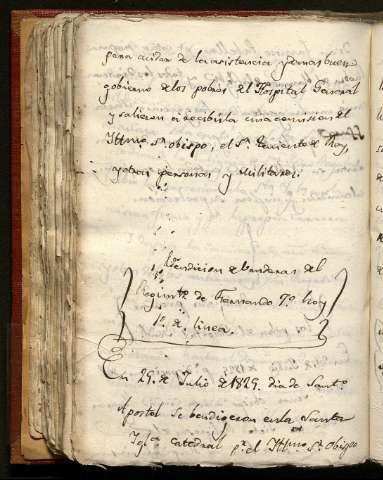 para cuidar de la asistencia y mas buen
gobierno de los pobres del Hospital General
y salieron a recibirla una comision del
Ittmo. Sr. obispo, el Sr. teniente de Rey,
y otras personas y militares.
Bendicion de banderas del
Regimto. de Fernando 7º hoy
1º de linea.
En 29. de Julio de 1829. dia de Santo.
Apostol se bendigeron en la Santa
Igla. catedral pr. el Ittmo. Sr. Obispo